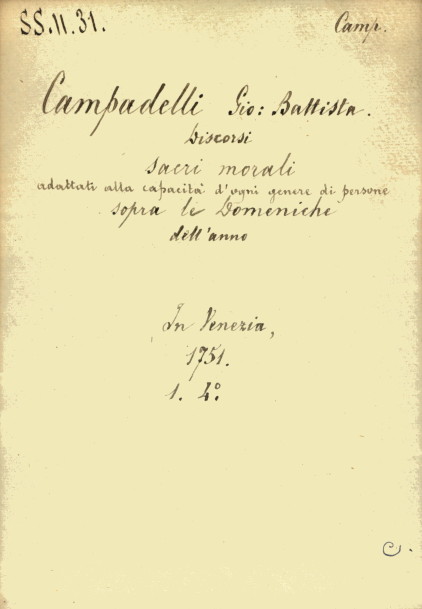 SS.11.31.
Camp.
Campadelli Gio: Battista.
Discorsi
sacri morali
adattati alla capacità d'ogni genere di persone
sopra le Domeniche
dell'anno
In Venezia,
1751.
1. 4.º
C.